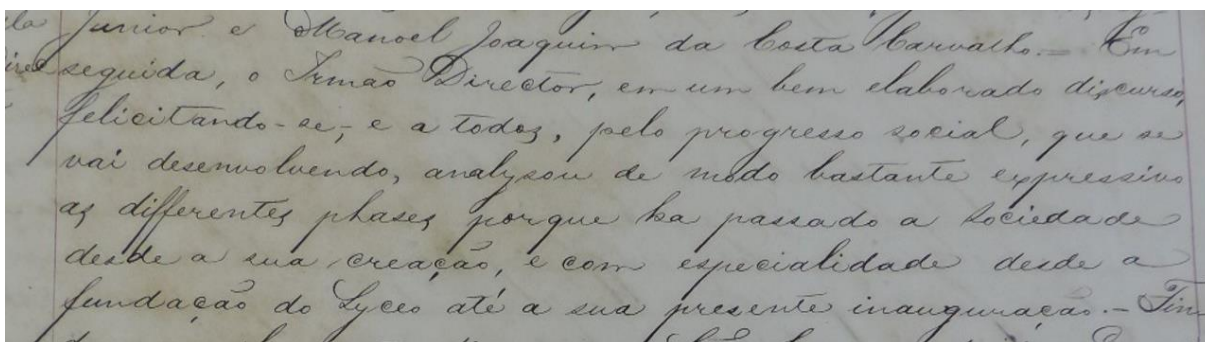 Junior e Manoel Joaquim da Costa Carvalho. – Em
seguida, o Irmão Director, em um bem elaborado discurso,
felicitando-se, e a todos, pelo progresso social, que se
vai desenvolvendo, analysou de modo bastante expressivo
as differentes phases porque ha passado a Sociedade
desde a sua creação, e com especialidade desde a
fundação do Lyceo até a sua presente inauguração. – Fin